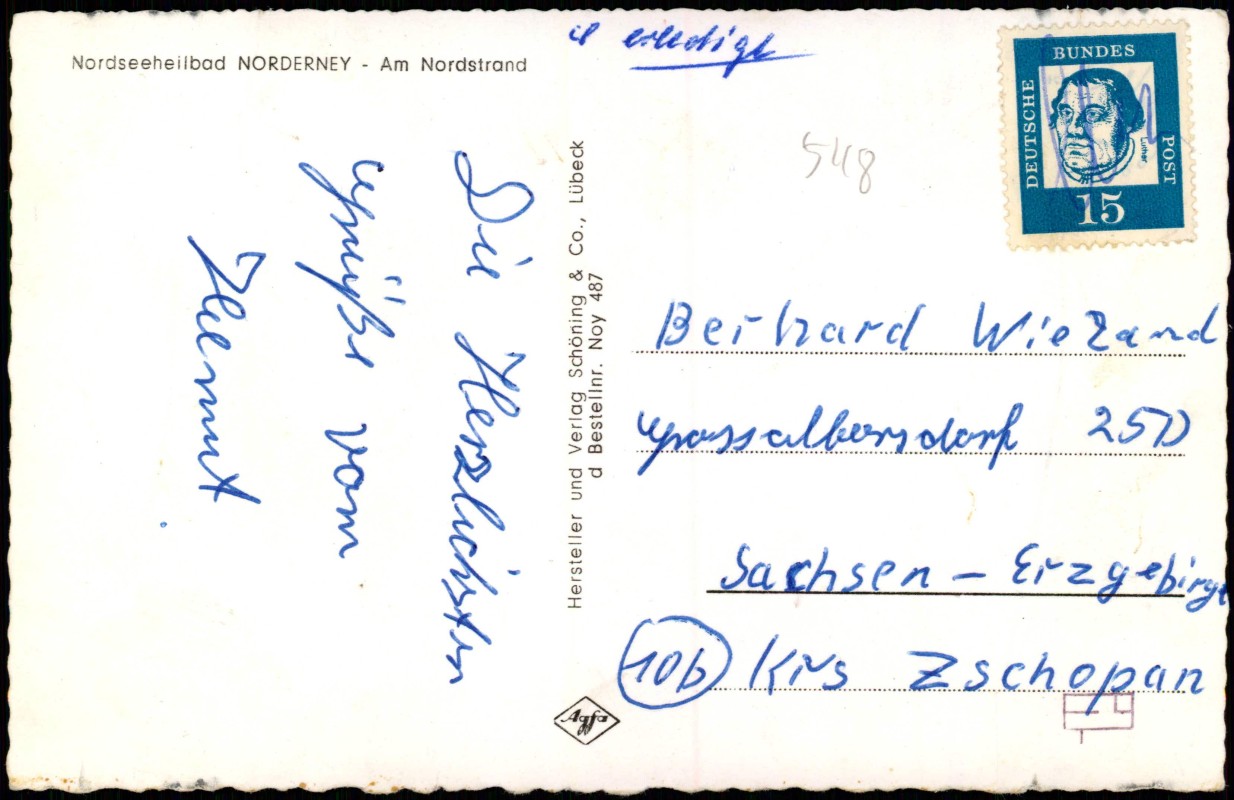 Nordseeheilbad NORDERNEY - Am Nordstrand
erledigt
BUNDES
DEUTSCHE
POST
Luther
15
548
Die Herzlichsten
Grüße vom
Helmut
Hersteller und Verlag Schöning & Co., Lübeck
d Bestellnr. Noy 487
Berhard Wieland
Grossolbersdorf 25D
Sachsen - Erzgebirge
10b Krs Zschopan
Agfa